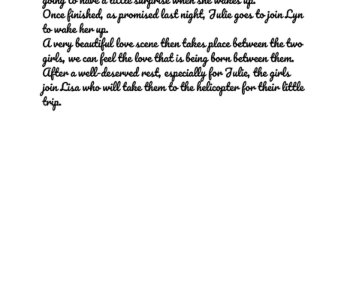 going to have a little surprise when she wakes up.
Once finished, as promised last night, Julie goes to join Lyn
to wake her up.
A very beautiful love scene then takes place between the two
girls, we can feel the love that is being born between them.
After a well-deserved rest, especially for Julie, the girls
join Lisa who will take them to the helicopter for their little
trip.